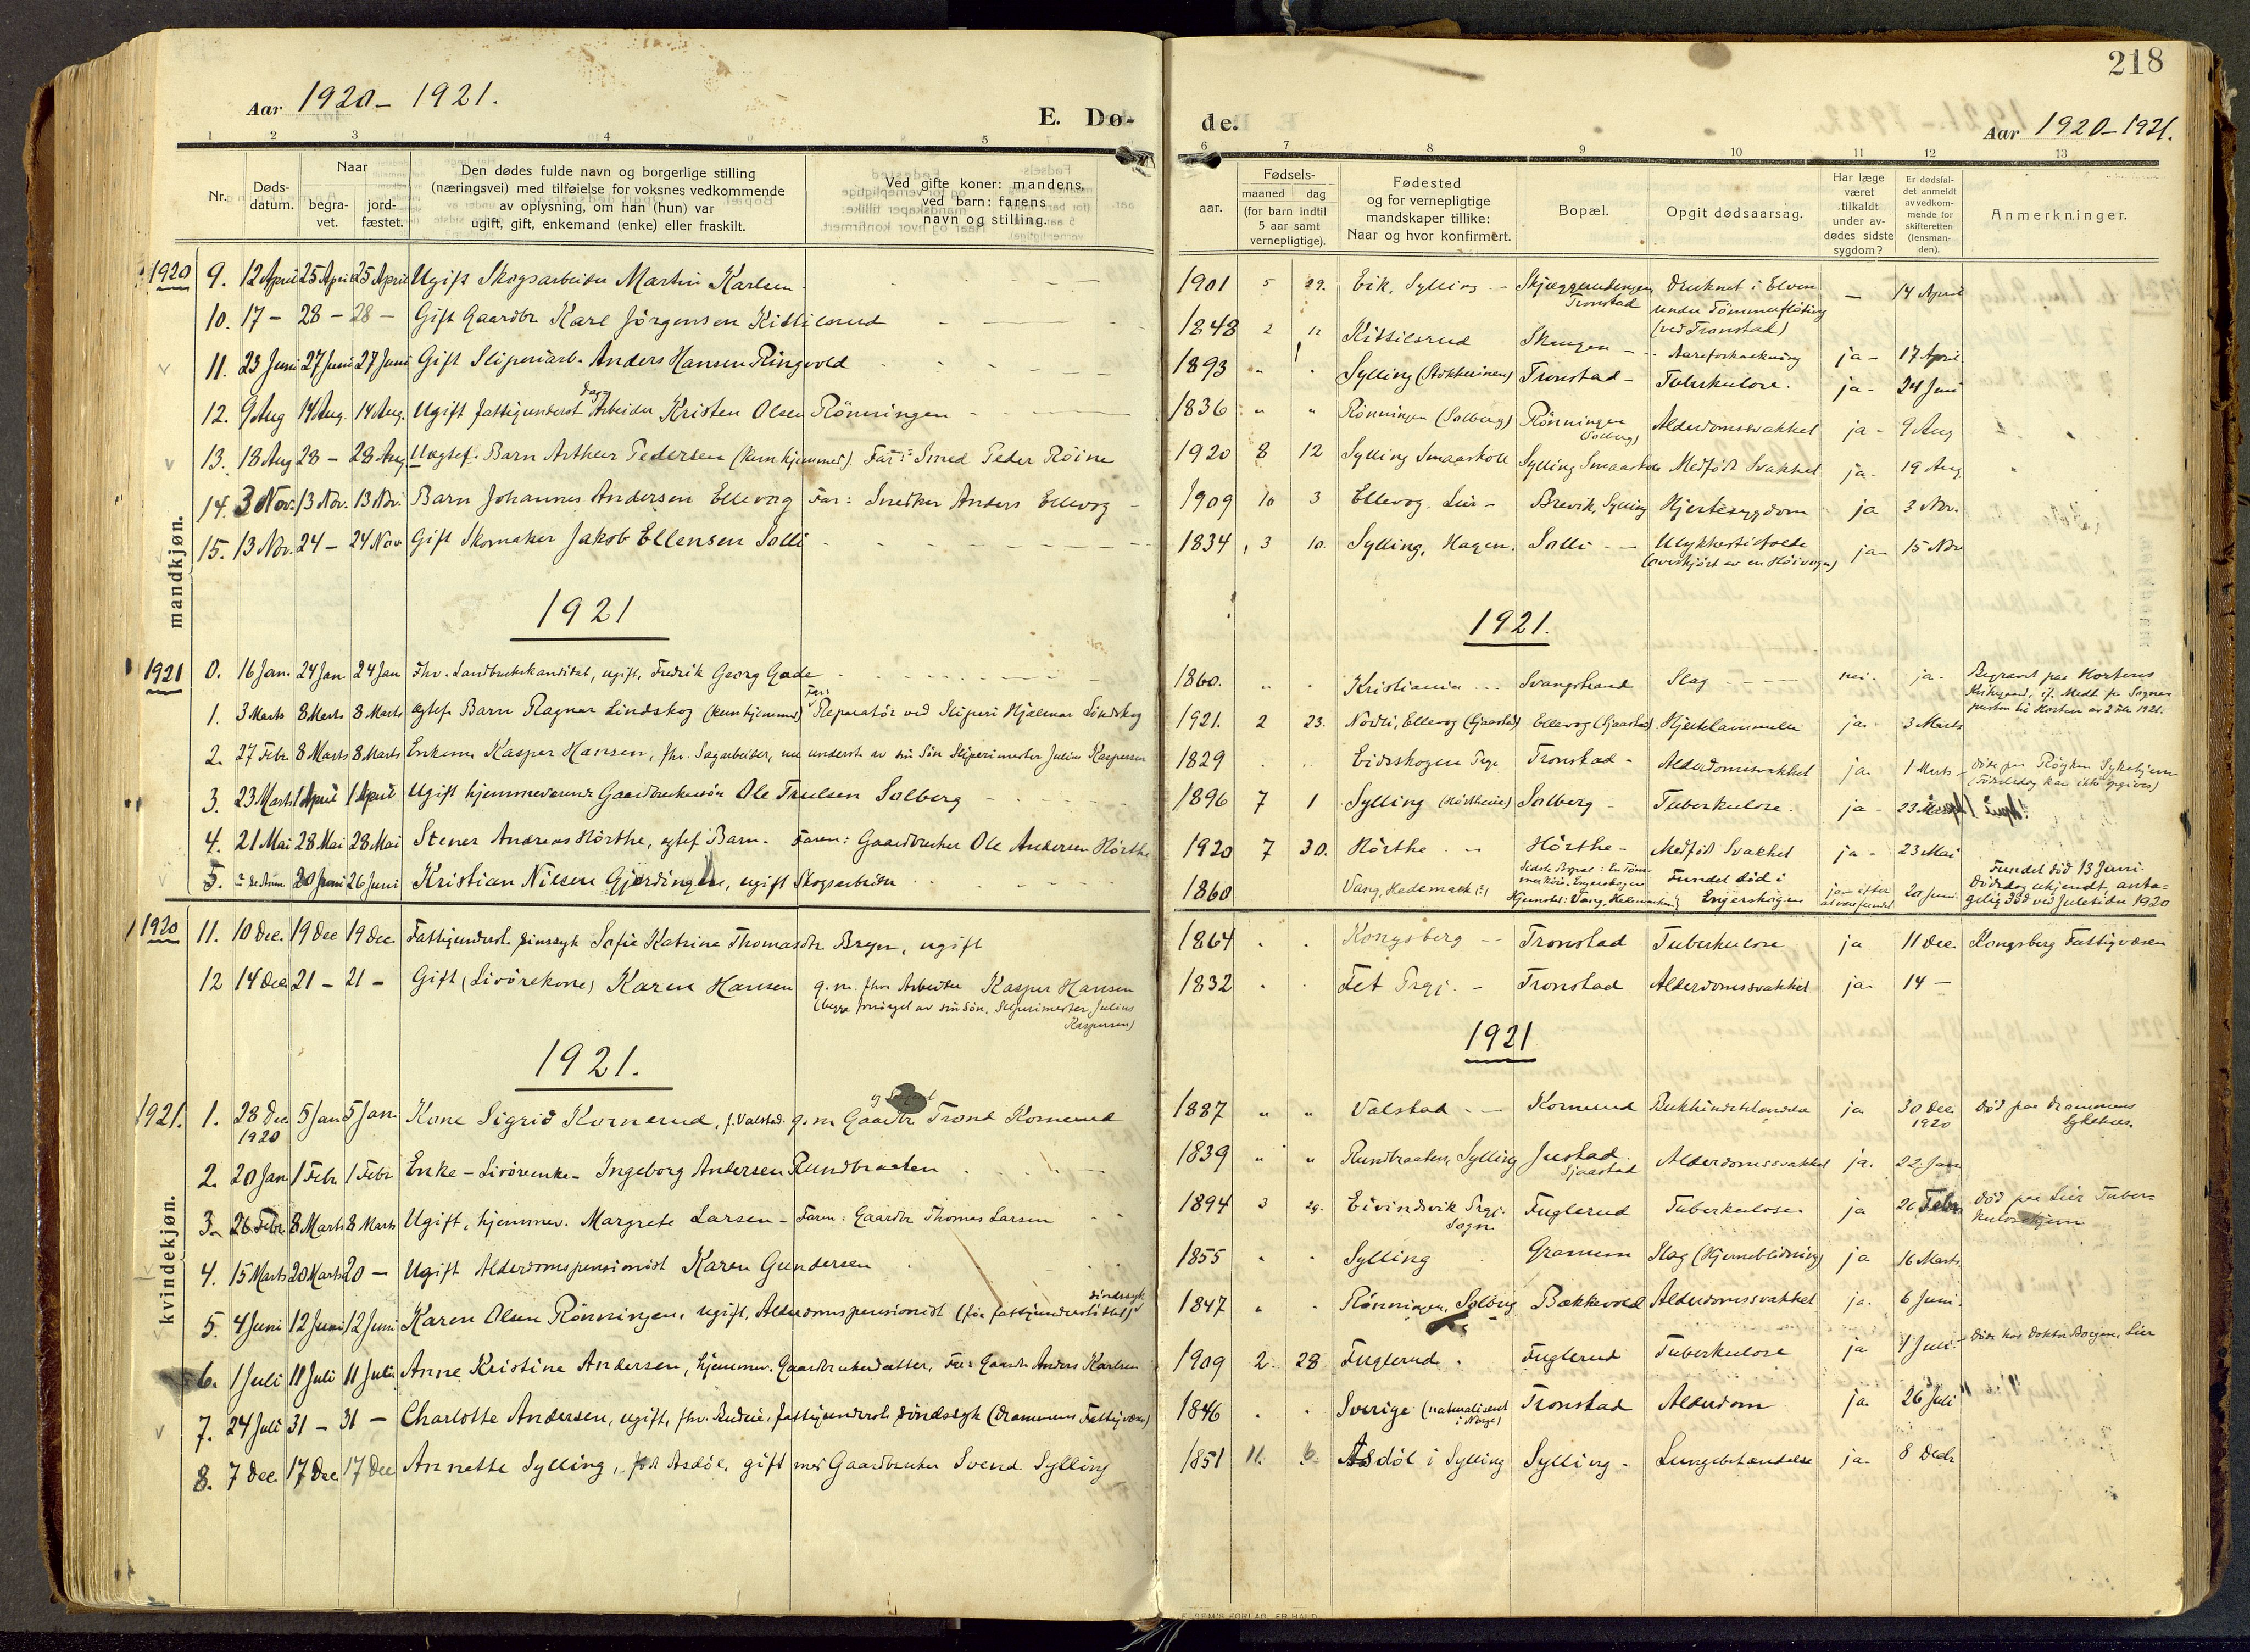 218
Aar 1920 - 1921.
E. Dø-
de.
Aar 1920 - 1921.
1 2 3 4 5 6 7 8 9 10 11 12 13
Nr. Døds-datum. Naar begra-vet. jord-fæstet. Den dødes fulde navn og borgerlige stilling (næringsvei) med tilføielse for voksnes vedkommende av oplysning, om han (hun) var ugift, gift, enkemand (enke) eller fraskilt. Ved gifte koner: mandens, ved barn: farens navn og stilling. aar. Fødsels- maaned dag (for barn indtil 5 aar samt vernepligtige). Fødested og for vernepligtige mandskaper tillike: Naar og hvor konfirmert. Bopæl. Opgit dødsaarsag. Har læge været tilkaldt under av-dødes sidste sygdom? Er dødsfal-det anmeldt av vedkom-mende for skifteretten (lensman-den). Anmerkninger.
mandkjøn.
1920 9. 12 April 25 April 25 April Ugift Skogsarbeider Martin Karlsen 1901 5 29. Eik, Sylling - Tronstad Druknet i Elven under Tømmerfløting (ved Tronstad) — 14 April
10. 17 - 28 - 28 - Gift Gaardbr. Karl Jörgensen Kittilsrud 1848 2 12 Kittilsrud Skaugen - Aareforkalkning ja - 17 April
11. 23 Juni 27 Juni 27 Juni Gift Sliperiarb. Anders Hansen Ringvold 1893 " " Sylling Tronstad - Tuberkulose. ja - 24 Juni
12. 9 Aug 14 Aug. 14 Aug. Ugift fattigunderst. Dag Arbeider Kristen Olsen Rönningen 1836 " " Rönningen (Solberg) Rönningen (Solberg) Alderdomssvakhet ja - 9 Aug
13. 18 Aug 28 - 28 Aug Uegtef. Barn Arthur Pedersen (kun hjemmed). Far: Smed Peder Röine 1920 8 12 Sylling Smaaskole Sylling Smaaskole Medfødt Svakhet ja - 19 Aug.
14. 3 Nov. 13 Nov. 13 Nov. Barn Johannes Andersen Ellevog Far: Snedker Anders Ellevog 1909 10 3 Ellevog, Lier - Brevik, Sylling Hjertesygdom ja 3 Nov.
15. 13 Nov. 24 - 24 Nov Gift Skomaker Jakob Ellensen Solli 1834 3 10. Sylling, Hagen. Solli - Ulykkestilfælde (overkjørt av en Høivogn) ja - 15 Nov
1921 1921.
1921 0. 16 Jan. 24 Jan 24 Jan Fhv. Landbrukskandidat, ugift, Fredrik Georg Gade 1860. " " Kristiania Svangstrand Slag nei. ja. Begravet paa Hortens
1. 3 Marts 8 Marts 8 Marts Egtef. Barn Ragnar Lindskog (kun hjemmed) Far: Reparatör ved Sliperi Hjalmar Lindskog 1921. 2 23. Nordli, Ellevog (Gjaastad) Ellevog (Gjaastad) Hjertelammelse ja - 3 Marts
2. 27 Febr. 8 Marts 8 Marts Enkem. Kasper Hansen, fhv. Sagarbeider, nu underst. av sin Sön Sliperimester Julius Kaspersen 1829 Eidskogen Prgj. Tronstad - Alderdomssvakhet ja - 1 Marts - döde paa Röyken Sykehjem (Födselsdag kan ikke opgives)
3. 23 Marts 1 April 1 April Ugift hjemmeværende Gaardbrukersön Ole Truelsen Solberg 1896 7 1 Sylling Solberg - Tuberkulose. ja - 23 Marts
4. 21 Mai 28 Mai 28 Mai Stener Andreas Hörthe, egtef. Barn. Faren: Gaardbruker Ole Andersen Hörthe 1920 7 30. Hörthe - Hörthe - Medfødt Svakhet ja - 23 Mai
5. 20 Juni 26 Juni Kristian Nilsen Gjerdingen, ugift Skogsarbeider 1860 Vang, Hedemark Fundet död i Engerskogen ja - efter at være fundet 20 Juni Fundet död 13 Juni Dödsdag ukjendt, anta-gelig död ved Juletider 1920
1920 11. 10 Dec. 19 Dec 19 Dec. Fattigunderst. sinssyk Sofie Katrine Thomasdtr. Bryn, ugift 1864 Kongsberg - Tronstad Tuberkulose ja 11 Dec. Kongsberg Fattigvæsen
12 14 Dec 21 - 21 - Gift (Livörekone) Karen Hansen g. m. fhv. Arbeider Kasper Hansen (begge forsörget av sin Sön, Sliperimester Julius Kaspersen) 1832 Fet Prgj. - Tronstad Alderdomssvakhet ja - 14 -
1921. 1921
kvindekjøn.
1921. 1. 28 Dec. 1920 5 Jan 5 Jan Kone Sigrid Kornerud, f. Valstad. g. m. Gaardbr. Trond Kornerud 1887 " " Valstad - Kornerud Bukhindebetændelse ja 30 Dec. 1920 Död paa Drammens Sykehus.
2. 20 Jan. 1 Febr. 1 Febr Enke - Livöreenke - Ingeborg Andersen Rundbraaten 1839 " " Rundbraaten, Sylling Justad. Sjaastad Alderdomssvakhet ja. 22 Jan
3. 26 Febr. 8 Marts 8 Marts Ugift, hjemmev. Margrete Larsen - Faren: Gaardbr. Thomas Larsen 1894 3 29. Eivindsvik Prgj. Sogn. Fuglerud Tuberkulose. ja 26 Febr Död paa Lier Tuber-kulosehjem
4. 15 Marts 20 Marts 20 - Ugift Alderdomspensionist Karen Gundersen 1855 Sylling Granum Slag (Hjerneblödning) ja 16 Marts
5. 4 Juni 12 Juni 12 Juni Karen Olsen Rönningen, ugift, Alderdomspensionist (för fattigunderstöttet) sindssyk 1847 Rönningen, Solberg Bækkevold Alderdomssvakhet ja. 6 Juni.
6. 1 Juli 11 Juli 11 Juli Anne Kristine Andersen, hjemmev. Gaardbrukerdatter, Far: Gaardbr Anders Karlsen 1909 2. 28 Fuglerud. Fuglerud Tuberkulose ja 1 Juli - Döde hos Doktor Borgen, Lier
7. 24 Juli 31 - 31 - Charlotte Andersen, ugift, fhv. Budeie, fattigunderst. sindssyk (Drammens Fattigvæsen) 1846 Sverige (naturalisert i Norge) Tronstad Alderdom ja. 26 Juli
8. 7 Dec. 17 Dec. 17 Dec Annette Sylling, født Asdöl, gift med Gaardbruker Svend Sylling 1851 11. 6. Asdöl i Sylling Sylling - Lungebetændelse ja - 8 Decbr